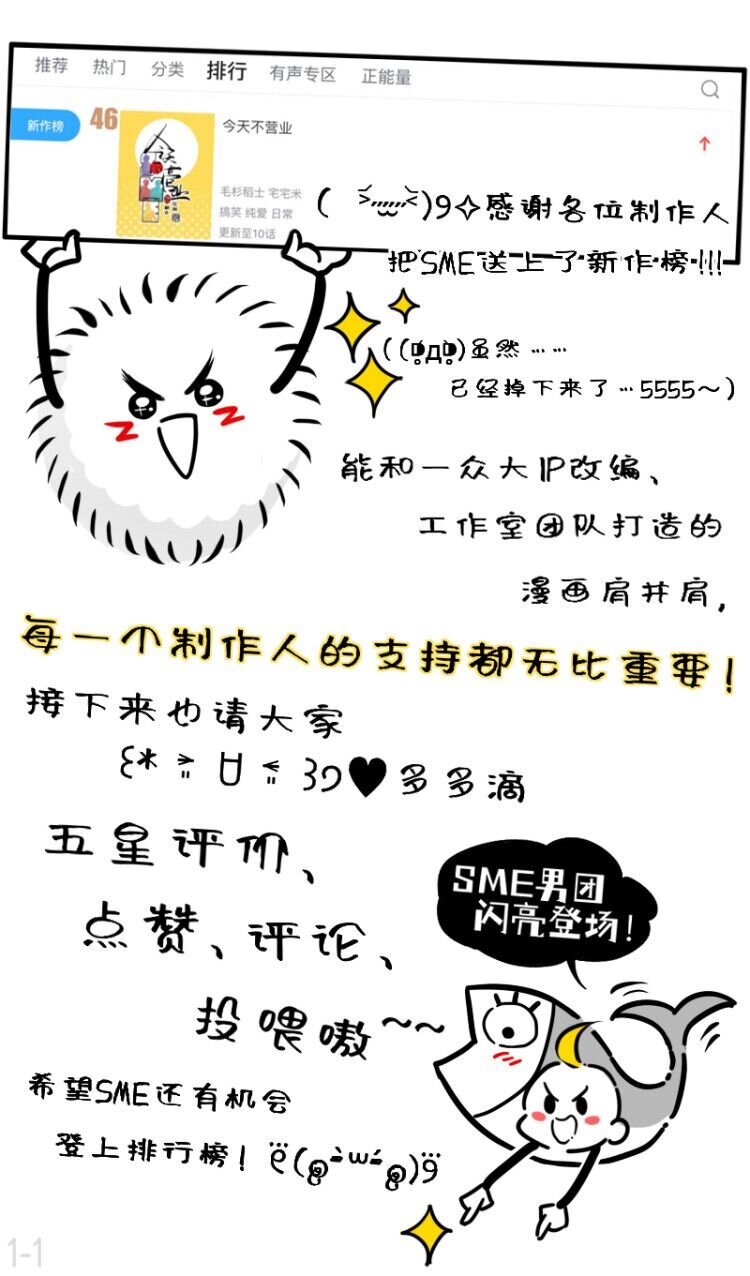 推荐 热门 分类 排行 有声专区 正能量
新作榜
46
今天不营业
今天营业
毛杉稻士 宅宅米
搞笑 纯爱 日常
更新至10话
感谢各位制作人
把SME送上了新作榜!!!
虽然……
已经掉下来了…5555~)
能和一众大IP改编、
工作室团队打造的
漫画肩并肩,
每一个制作人的支持都无比重要!
接下来也请大家
♥多多滴
五星评价、
点赞、评论、
投喂嗷~~
SME男团
闪亮登场!
希望SME还有机会
登上排行榜!
1-1